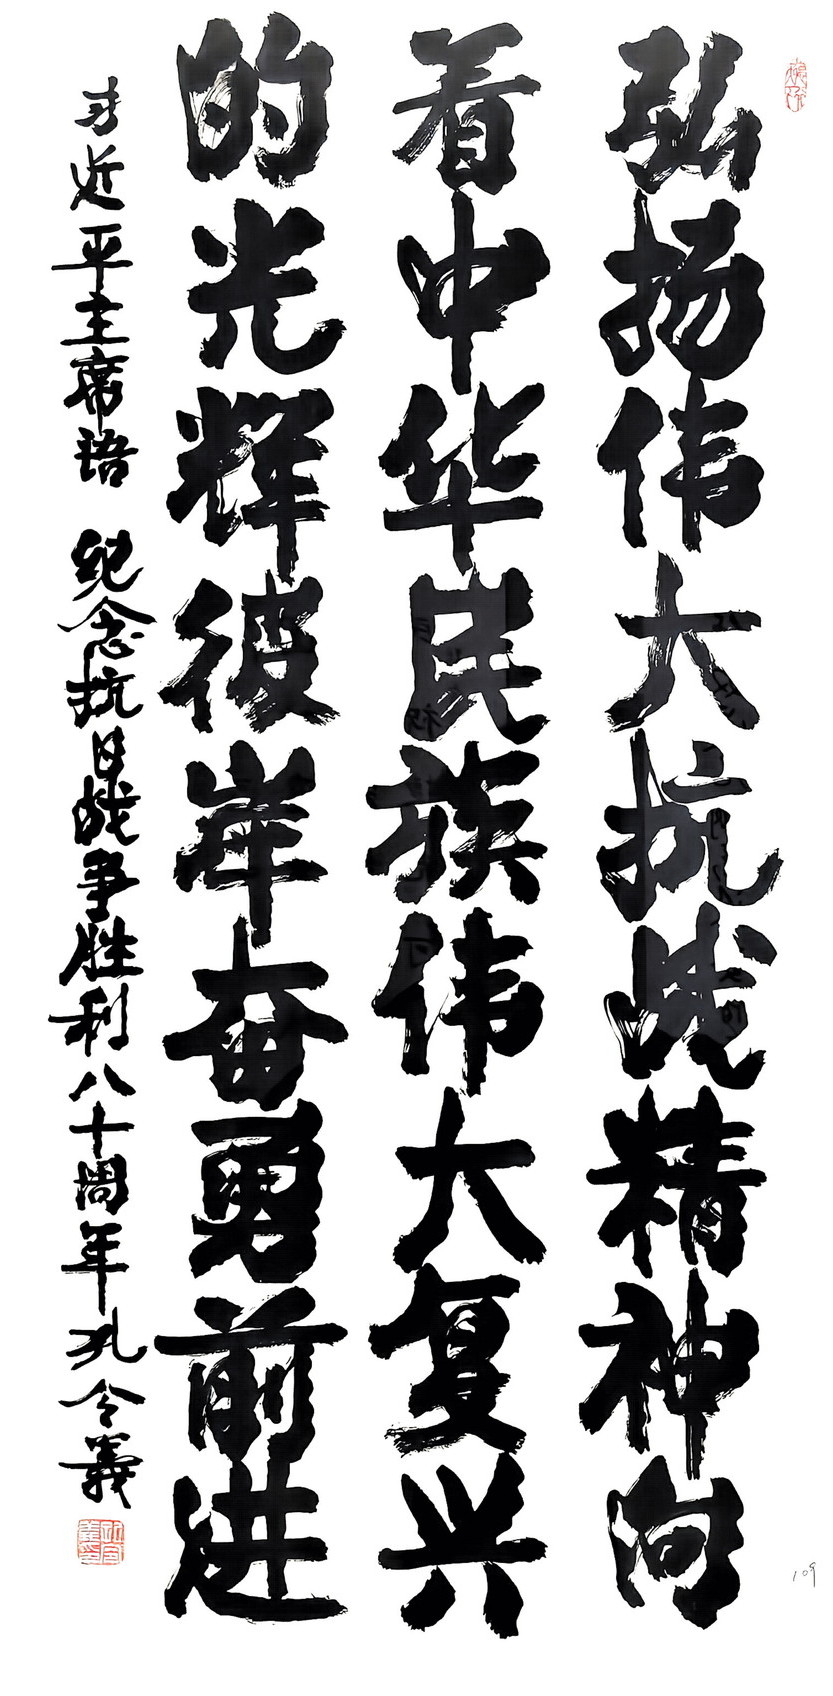 弘扬伟大抗战精神向
看中华民族伟大复兴
的光辉彼岸奋勇前进
习近平主席语 纪念抗日战争胜利八十周年孔令义
109